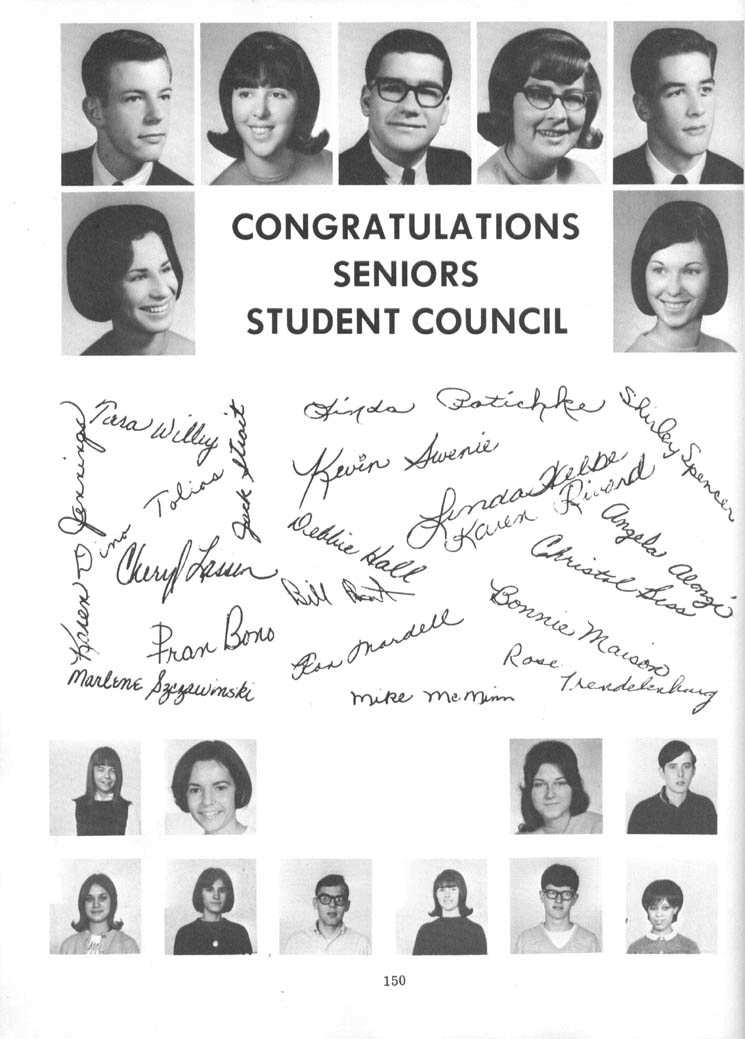 CONGRATULATIONS
SENIORS
STUDENT COUNCIL
Tara Willey
Linda Batichke
Shirley Spencer
Karen D Jennings
Jack Strait
Kevin Swenie
Dino Tolias
Linda Webbe
Karen Rivard
Debbie Hall
Angela Alongi
Cheryl Lassen
Christal Liss
Bill
Bonnie Maison
Fran Bono
Ron Mardell
Rose Trendelenburg
Marlene Szczawinski
Mike McMinn
150